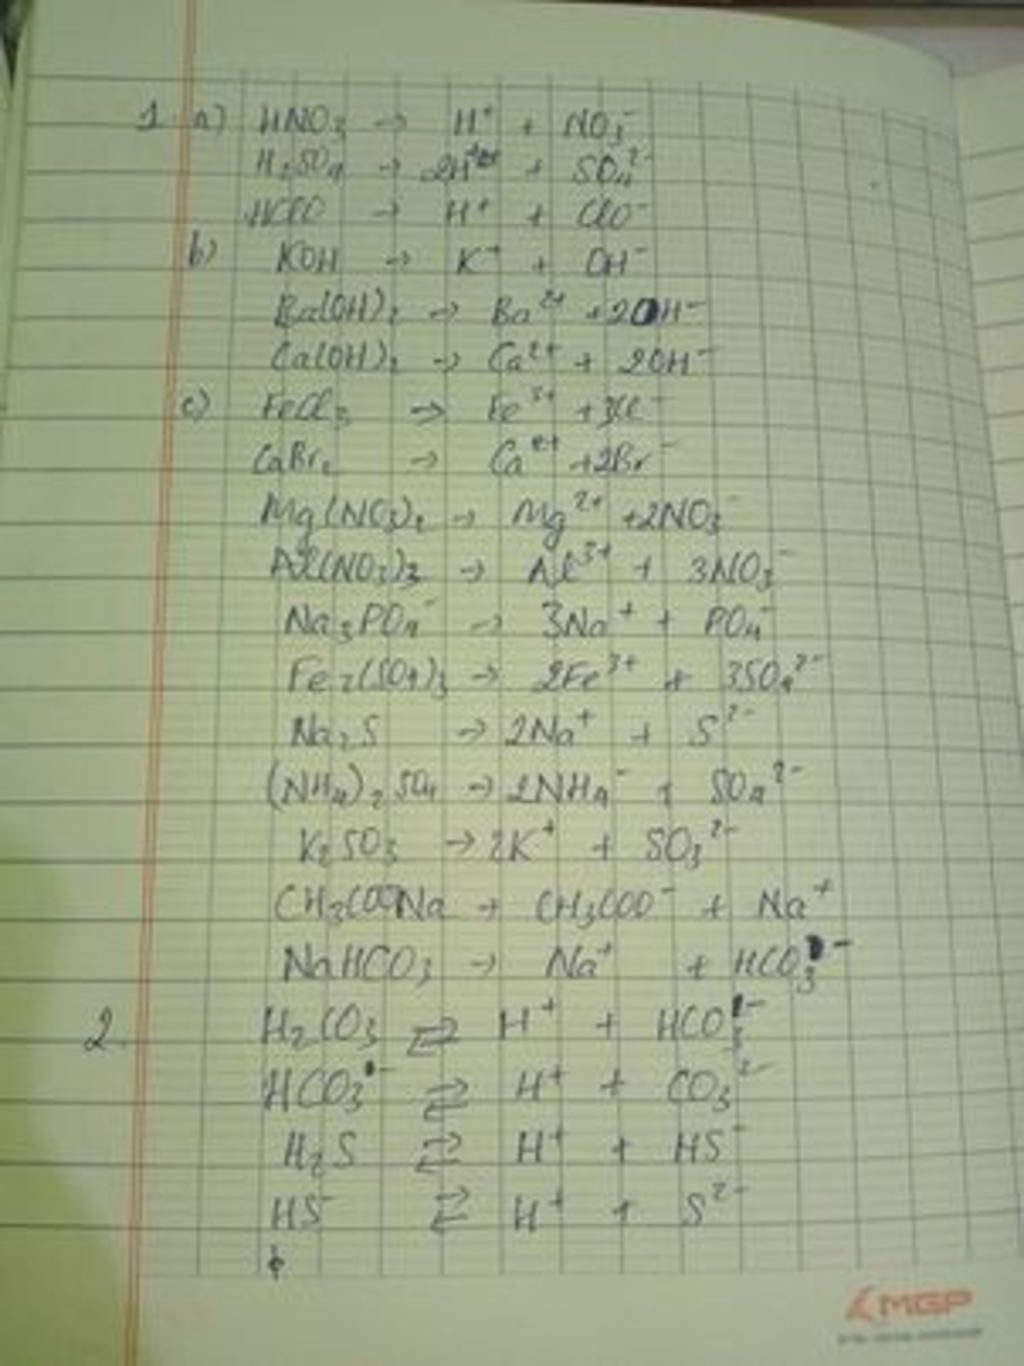 1 a) HNO₃ → H⁺ + NO₃⁻
H₂SO₄ → 2H⁺ + SO₄²⁻
HClO → H⁺ + ClO⁻
b) KOH → K⁺ + OH⁻
Ba(OH)₂ → Ba²⁺ + 2OH⁻
Ca(OH)₂ → Ca²⁺ + 2OH⁻
c) FeCl₃ → Fe³⁺ + 3Cl⁻
CaBr₂ → Ca²⁺ + 2Br⁻
Mg(NO₃)₂ → Mg²⁺ + 2NO₃⁻
Al(NO₃)₃ → Al³⁺ + 3NO₃⁻
Na₃PO₄⁻ → 3Na⁺ + PO₄⁻
Fe₂(SO₄)₃ → 2Fe³⁺ + 3SO₄²⁻
Na₂S → 2Na⁺ + S²⁻
(NH₄)₂SO₄ → 2NH₄⁻ + SO₄²⁻
K₂SO₃ → 2K⁺ + SO₃²⁻
CH₃COONa → CH₃COO⁻ + Na⁺
NaHCO₃ → Na⁺ + HCO₃⁻
2. H₂CO₃ ⇄ H⁺ + HCO₃⁻
HCO₃⁻ ⇄ H⁺ + CO₃²⁻
H₂S ⇄ H⁺ + HS⁻
HS⁻ ⇄ H⁺ + S²⁻
MGP